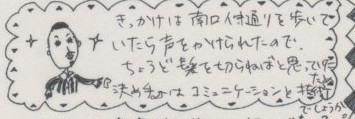 きっかけは南口仲通りを歩いて
いたら声をかけられたので。
ちょうど髪を切らねばと思ってた
ため
決め手はコミュニケーションと技術
でしょうか